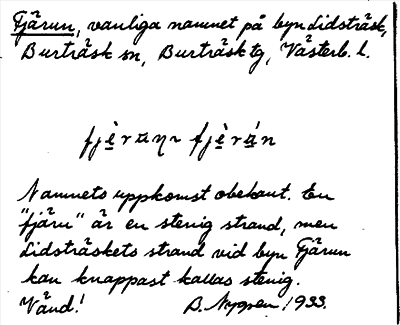 Fjärun, vanliga namnet på byn Lidsträsk,
Burträsk sn, Burträsk tg, Västerb. l.
Namnets uppkomst obekant. En
"fjäru" är en stenig strand, men
Lidsträskets strand vid byn Fjärun
kan knappast kallas stenig.
Vänd! B. Nyppen 1933.